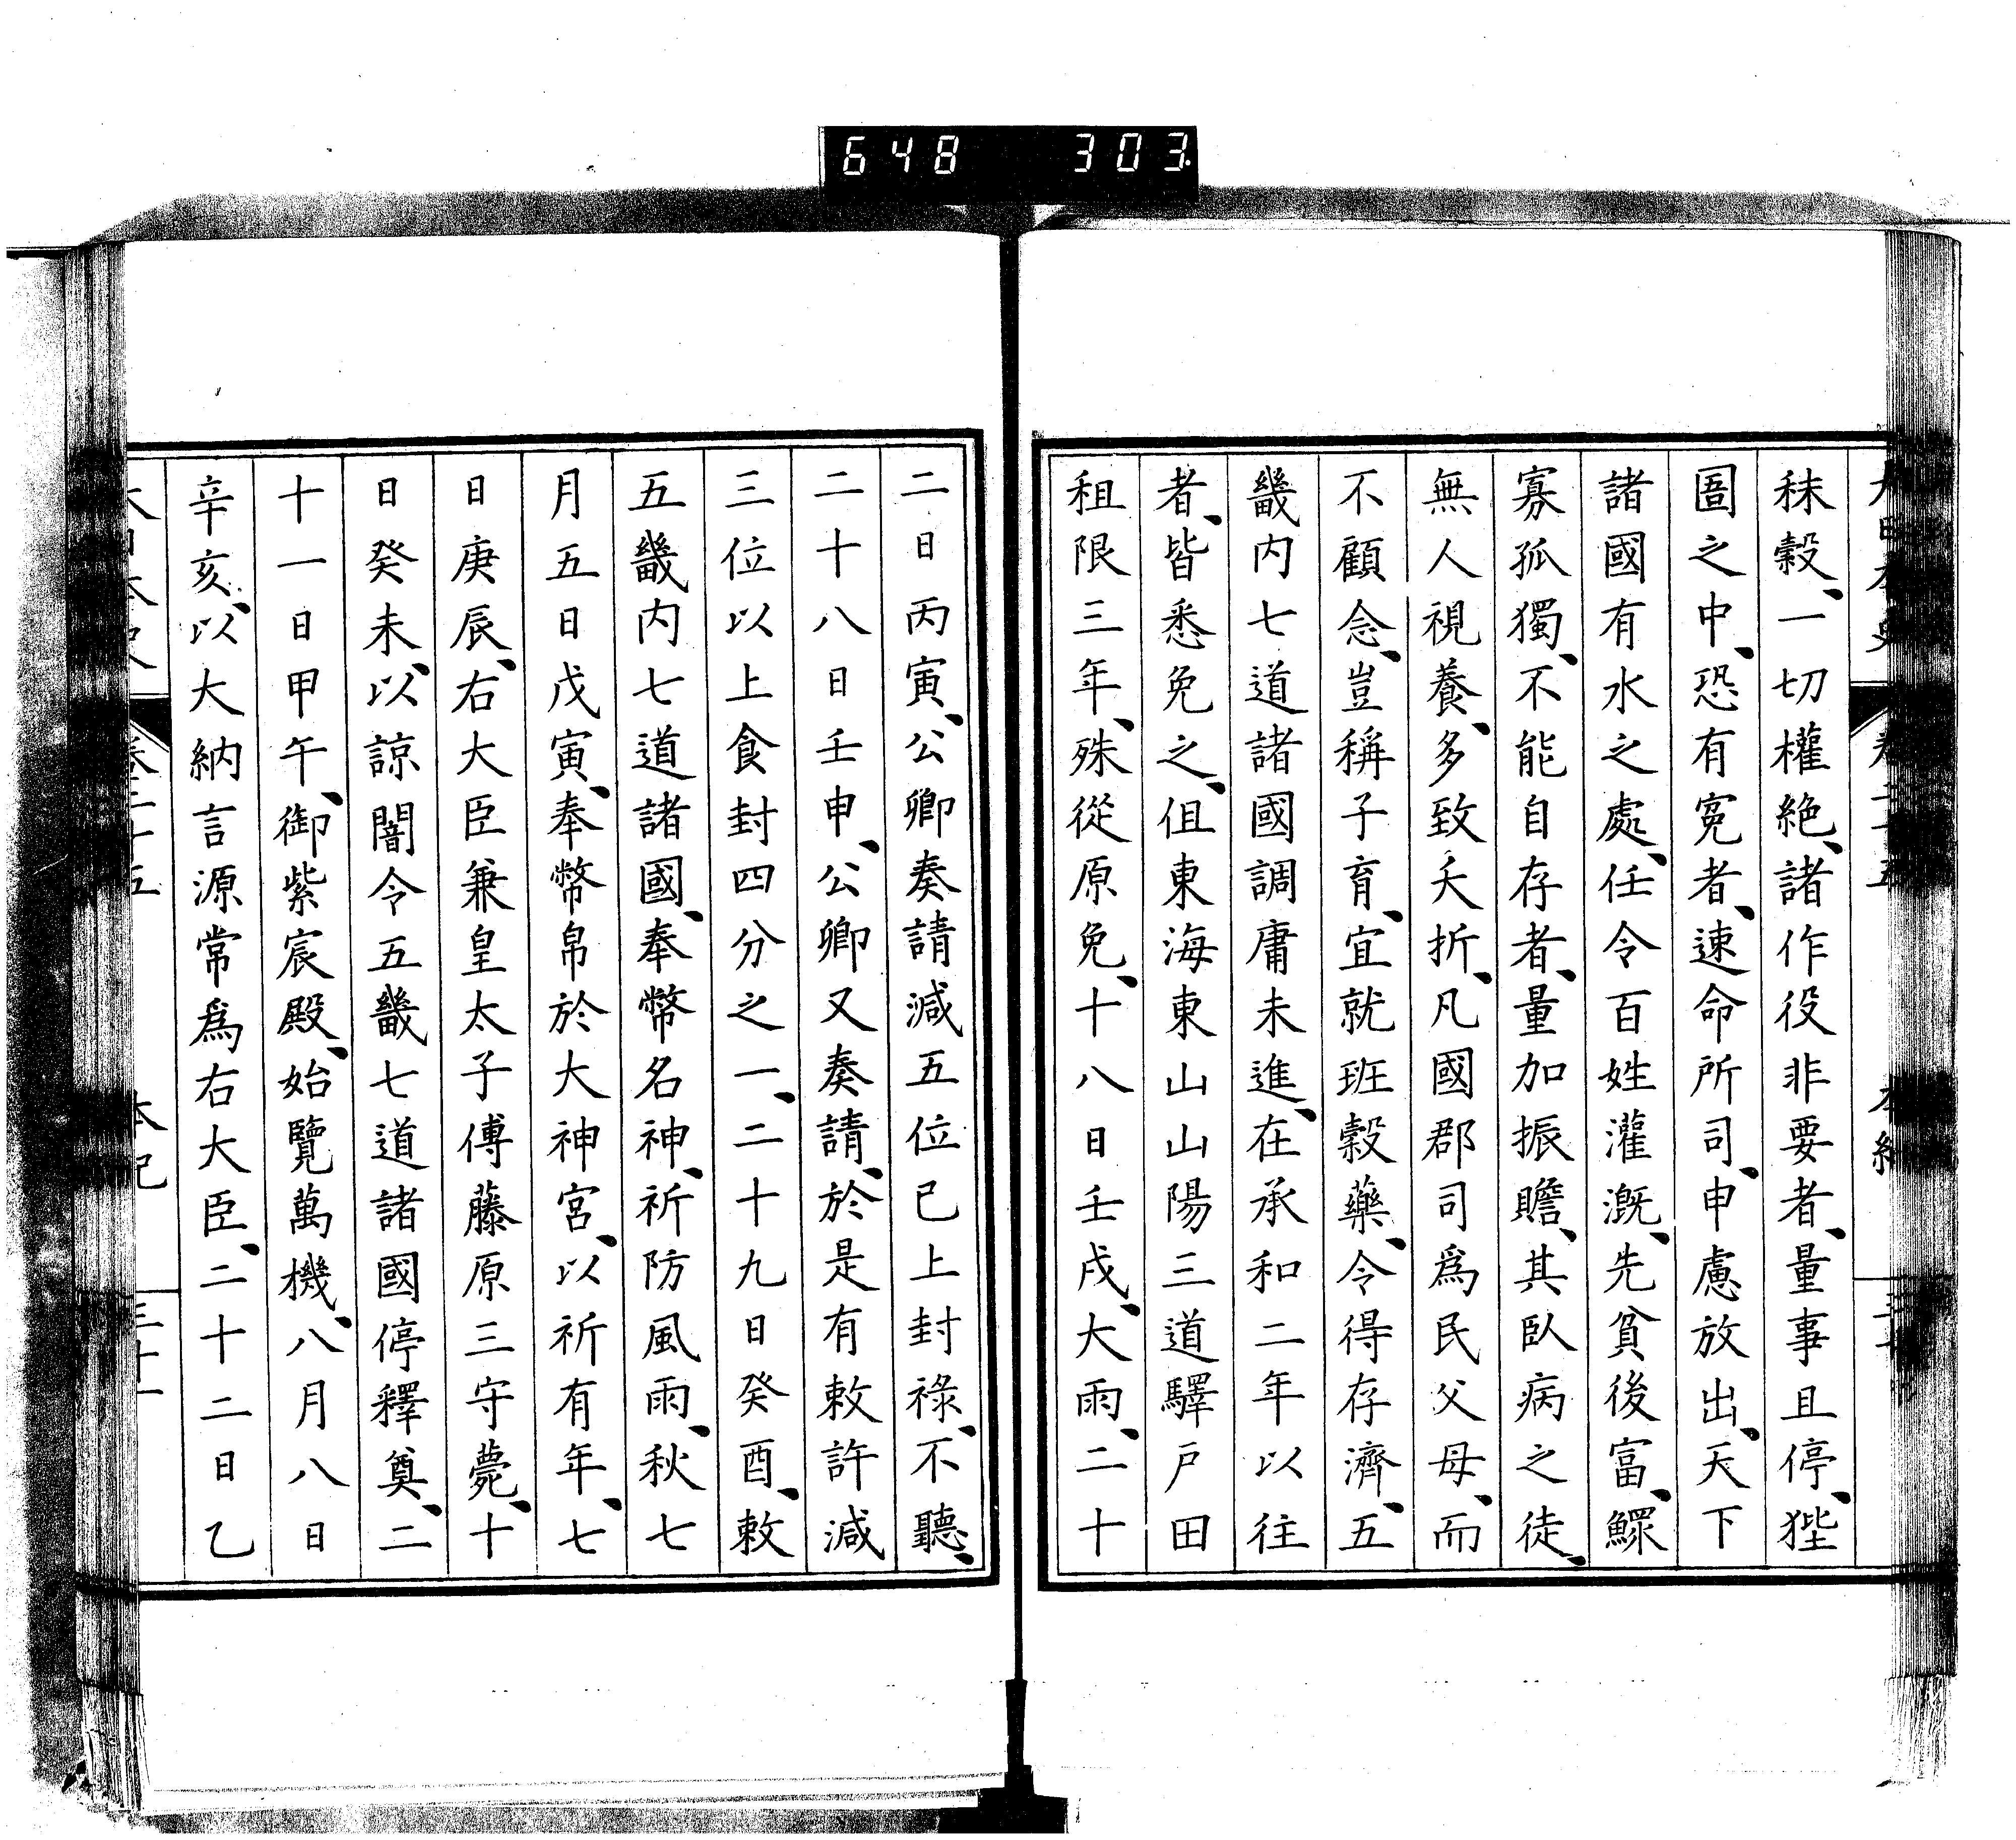 648 303
秣穀、一切權絶、諸作役非要者、量事且停、狴
圄之中、恐有冤者、速命所司、申慮放出、天下
諸國有水之處、任令百姓灌漑、先貧後富、鰥
寡孤獨、不能自存者、量加振贍、其臥病之徒、
無人視養、多致夭折、凡國郡司爲民父母、而
不顧念、豈稱子育、宜就班穀藥、令得存濟、五
畿内七道諸國調庸未進、在承和二年以往
者、皆悉免之、但東海東山山陽三道驛戸田
租限三年、殊從原免、十八日壬戌、大雨、二十
二日丙寅、公卿奏請減五位已上封祿、不聽、
二十八日壬申、公卿又奏請、於是有敕許減
三位以上食封四分之一、二十九日癸酉、敕
五畿内七道諸國、奉幣名神、祈防風雨、秋七
月五日戊寅、奉幣帛於大神宮、以祈有年、七
日庚辰、右大臣兼皇太子傅藤原三守薨、十
日癸未、以諒闇令五畿七道諸國停釋奠、二
十一日甲午、御紫宸殿、始覽萬機、八月八日
辛亥、以大納言源常爲右大臣、二十二日乙